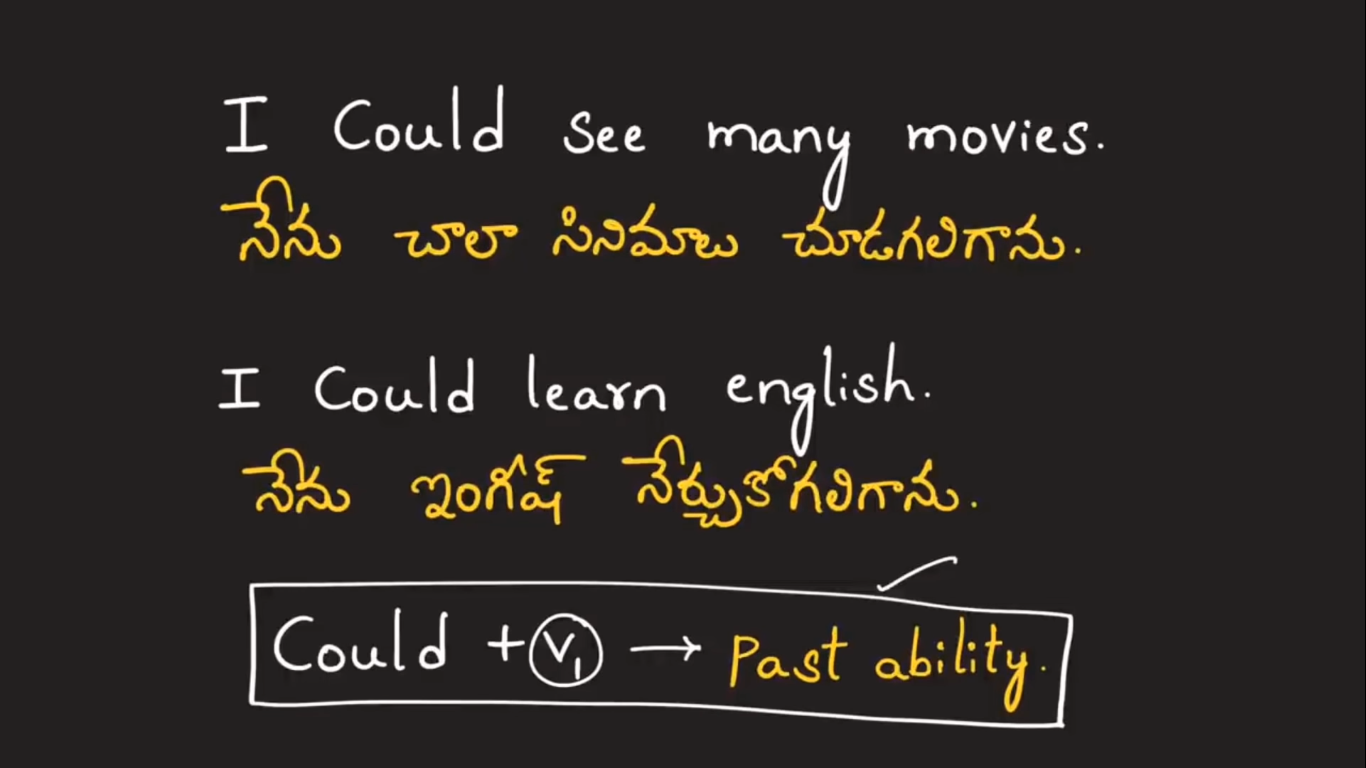 I Could see many movies.
నేను చాలా సినిమాలు చూడగలిగాను.
I Could learn english.
నేను ఇంగీష్ నేర్చుకోగలిగాను.
Could + V₁ → Past ability.